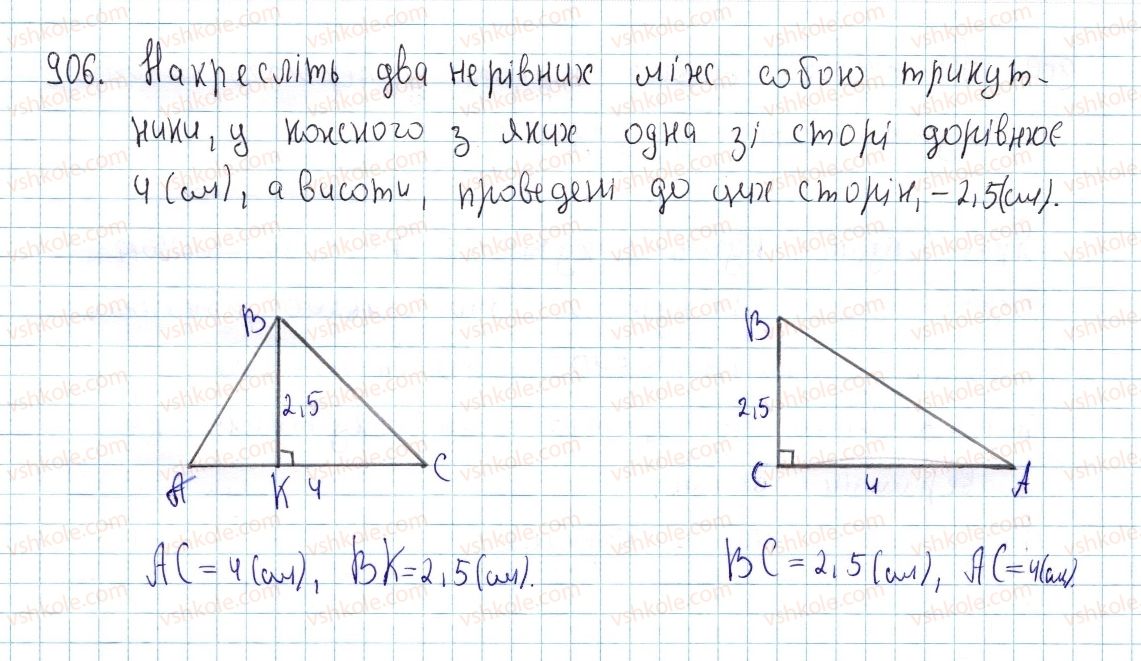 906. Накресліть два нерівних між собою трикут-
ники, у кожного з яких одна зі сторі дорівнює
4 (см), а висоти, проведені до цих сторін, – 2,5 (см).
B
B
2,5
2,5
A
K
4
C
C
4
A
AC = 4 (см), BK = 2,5 (см).
BC = 2,5 (см), AC = 4 (см).
vshkole.com